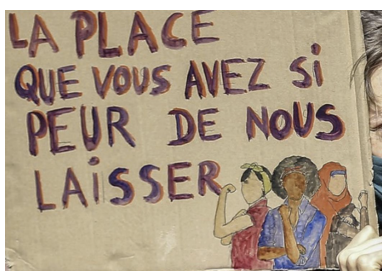 LA PLACE
QUE VOUS AVEZ Si
PEUR DE NOUS
LAiSSER